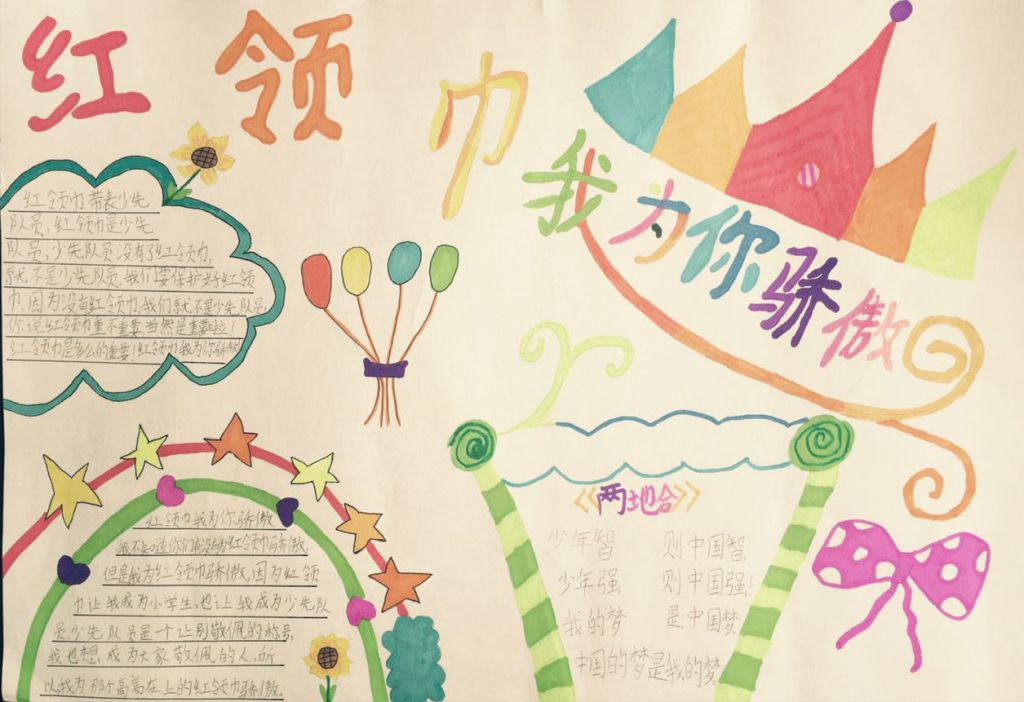 红领巾
我为你骄傲
红领巾带表少先
队员,红领巾是少先
队员,少先队员没有了红领巾,
就不是少先队员.我们要保护好红领
巾,因为没有红领巾,我们就不是少先队员,
你说红领巾重不重要,当然是重要啦!
红领巾是多么的重要!红领巾我为你骄傲!
红领巾我为你骄傲
我不知道你们有没有为红领巾骄傲,
但是我为红领巾骄傲,因为红领
巾让我成为小学生,也让我成为少先队
员,少先队员是一个让别敬佩的称号,
我也想成为大家敬佩的人,所
以我为那个高高在上的红领巾骄傲.
《两地合》
少年智 则中国智,
少年强 则中国强!
我的梦 是中国梦,
中国的梦是我的梦,